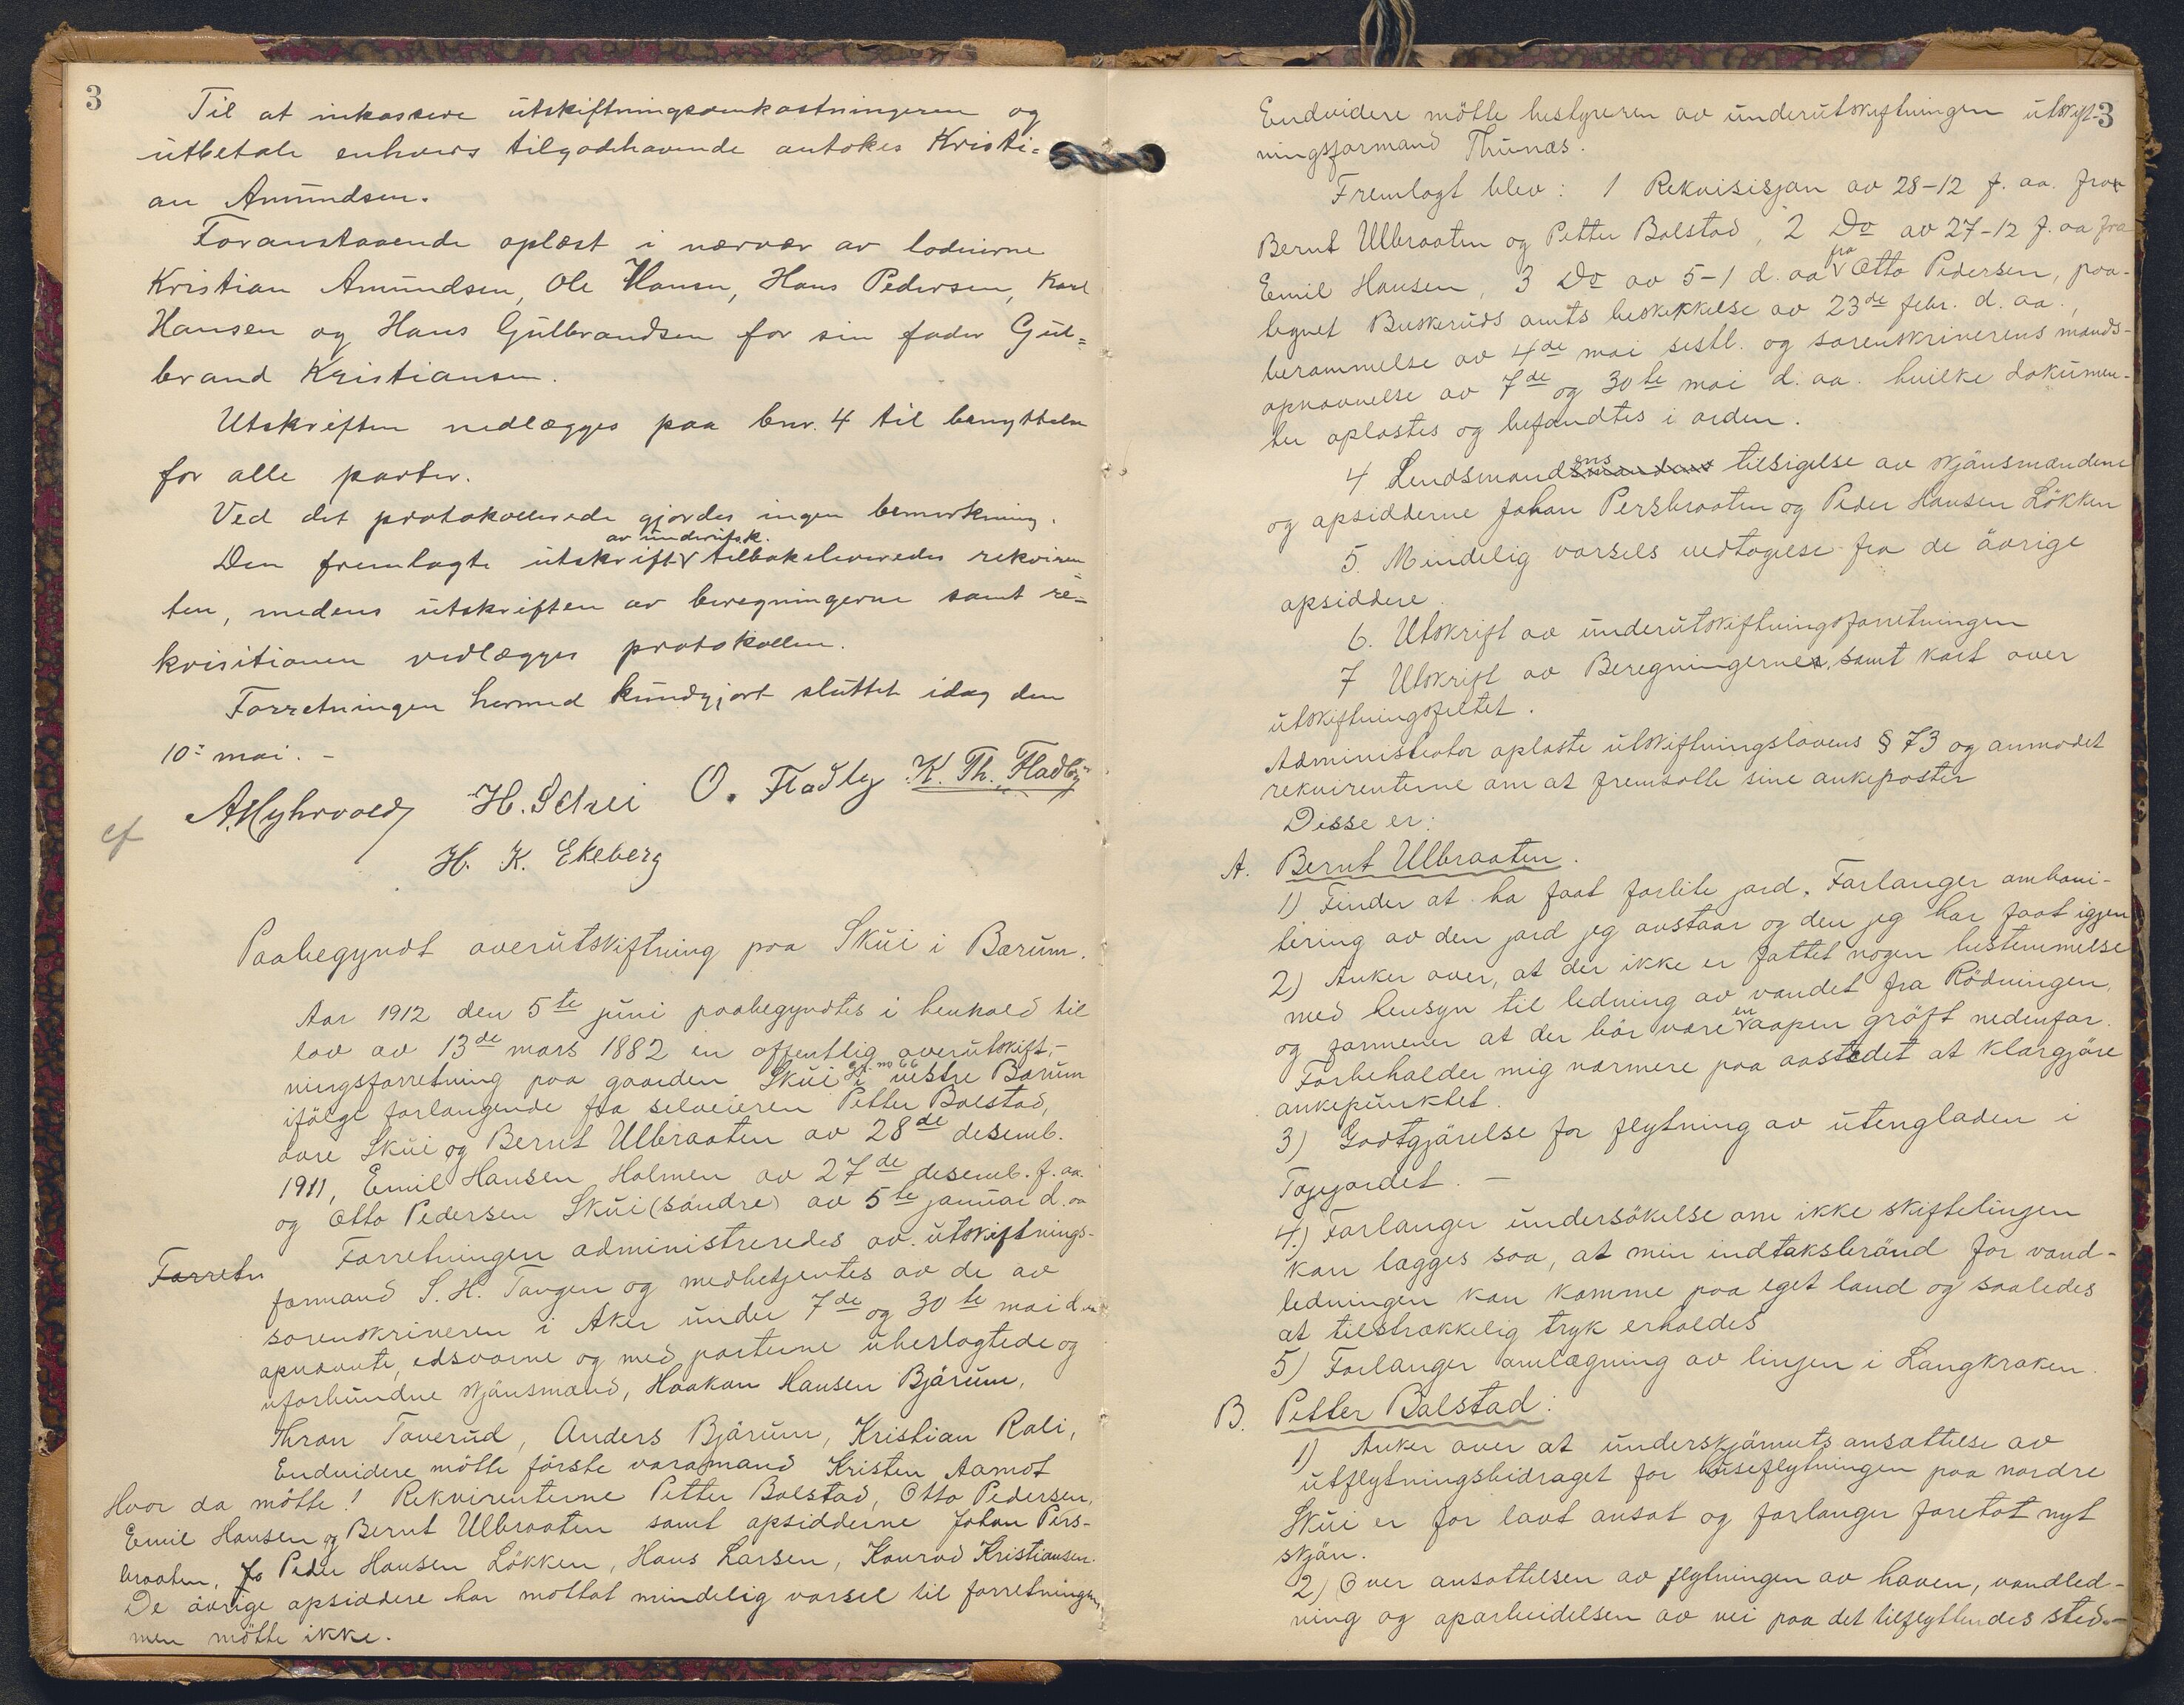 3
Til at inkassere utskiftningsomkostningeren og
utbetale enhvers tilgodehavende antokes Kristi=
an Amundsen.
Foranstaaende oplæst i nærvær av lodeierne
Kristian Amundsen, Ole Hansen, Hans Pedersen, Karl
Hansen og Hans Gulbrandsen for sin fader Gul=
brand Kristiansen.
Utskriften nedlægges paa bnr. 4 til benyttelse
for alle parter.
Ved det protokollerede gjordes ingen bemerkning.
av underutsk.
Den fremlagte utskrift tilbakeleveredes rekviren
ten, medens utskriften av beregningerne samt re=
kvisitionen vedlægges protokollen.
Forretningen hermed kundgjort sluttet idag den
10: mai. -
A. Myhrvold H. Schei O. Fladby K. Th. Fladby
H. K. Ekeberg
Paabegyndt overutskiftning paa Skui i Bærum.
Aar 1912 den 5te juni paabegyndtes i henhold til
lov av 13de mars 1882 en offentlig overutskift,-
ningsforretning paa gaarden Skui g. no 66 i vestre Bærum
ifölge forlangende fra selveieren Petter Bolstad,
övre Skui og Bernt Ulbraaten av 28de desemb.
1911, Emil Hansen Holmen av 27de desemb. f. aa.
og Otto Pedersen Skui (söndre) av 5te januar d. aa
Forretn Forretningen administreredes av utskiftnings-
formand S. H. Tangen og medbetjentes av de av
sorenskriveren i Aker under 7de og 30te mai d. aa
opnævnte, edsvorne og med parterne ubeslægtede og
uforbundne skjönsmænd, Haakon Hansen Bjärum,
Thron Taverud, Anders Bjärum, Kristian Roli,
Endvidere mötte förste varamand Kristen Aamot
Hvor da mötte! Rekvirenterne Petter Bolstad, Otto Pedersen,
Emil Hansen og Bernt Ulbraaten samt opsidderne Johan Pers-
braaten, Jo Peder Hansen Lökken, Hans Larsen, Konrad Kristiansen.
De övrige opsiddere har mottat mindelig varsel til forretningen,
men mötte ikke.
3
Endvidere mötte bestyreren av underutskiftningen utskift-
ningsformand Thunæs.
Fremlagt blev: 1 Rekvisisjon av 28-12 f. aa. fra
Bernt Ulbraaten og Petter Bolstad, 2 Do av 27-12 f. aa fra
Emil Hansen, 3 Do av 5-1 d. aa fra Otto Pedersen, paa-
tegnet Buskeruds amts beskikkelse av 23de febr. d. aa.,
berammelse av 4de mai sistl. og sorenskriverens mands-
opnævnelse av 7de og 30te mai d. aa. hvilke dokumen-
ter oplæstes og befandtes i orden.
4 Lendsmandens tilsigelse av skjönsmændene
og opsidderne Johan Persbraaten og Peder Hansen Lökken
5. Mindelig varsels vedtagelse fra de övrige
opsiddere.
6. Utskrift av underutskiftningsforretningen
7 Utskrift av Beregningerne, samt kart over
utskiftningsfeltet.
Administrator oplæste utskiftningslovens § 73 og anmodet
rekvirenterne om at fremsætte sine ankeposter
Disse er:
A. Bernt Ulbraaten.
1) Finder at ha faat forlite jord. Forlanger omboni-
tering av den jord jeg avstaar og den jeg har faat igjen
2) Anker over, at der ikke er fattet nogen bestemmelse
med hensyn til ledning av vandet fra Rödningen,
og formener at der bör være en aapen gröft nedenfor.
Forbeholder mig nærmere paa aastedet at klargjöre
ankepunktet.
3) Godtgjörelse for flytning av utengladen i
Topjordet. -
4.) Forlanger undersökelse om ikke skiftelinjen
kan lægges saa, at min indtaksbrönd for vand-
ledningen kan komme paa eget land og saaledes
at tilstrækkelig tryk erholdes
5) Forlanger omlægning av linjen i Langkroken.
B. Petter Bolstad:
1) Anker over at underskjönnets ansættelse av
utflytningsbidraget for huseflytningen paa nordre
Skui er for lavt ansat og forlanger foretat nyt
skjön.
2) Over ansættelsen av flytningen av haven, vandled-
ning og oparbeidelsen av vei paa det tilflyttendes sted.-